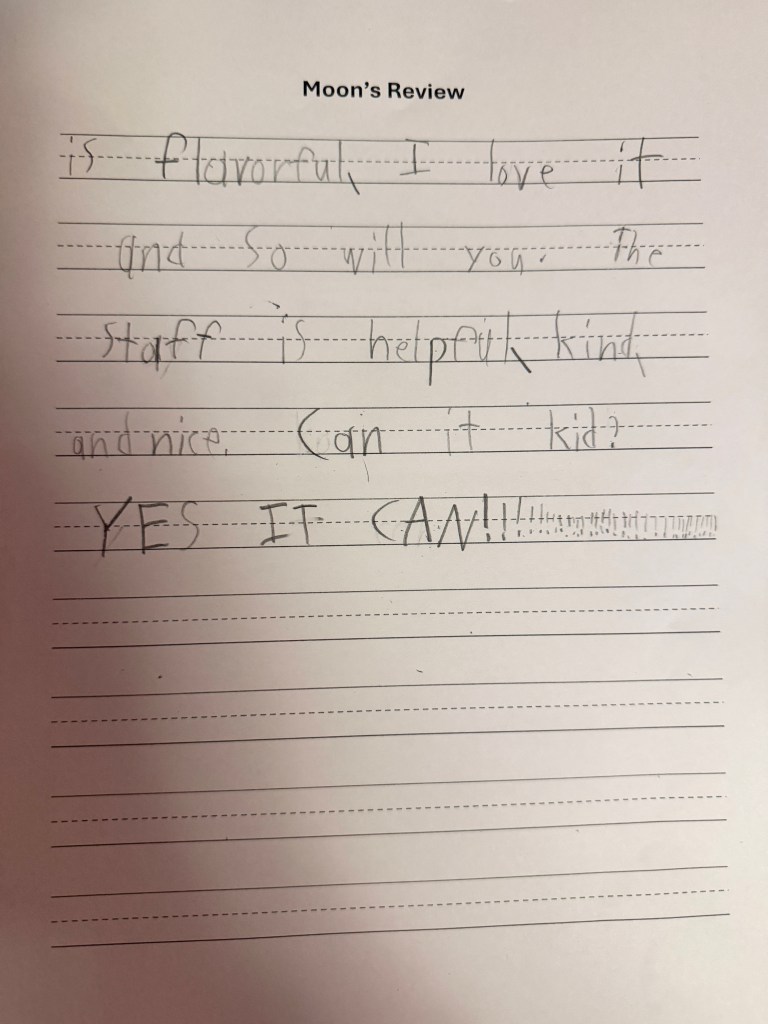 Moon's Review
is flavorful, I love it
and so will you. The
staff is helpful, kind,
and nice. Can it kid?
YES IT CAN!!!!!!!!!!!!!!!!!!!!!!!!!!!!!!